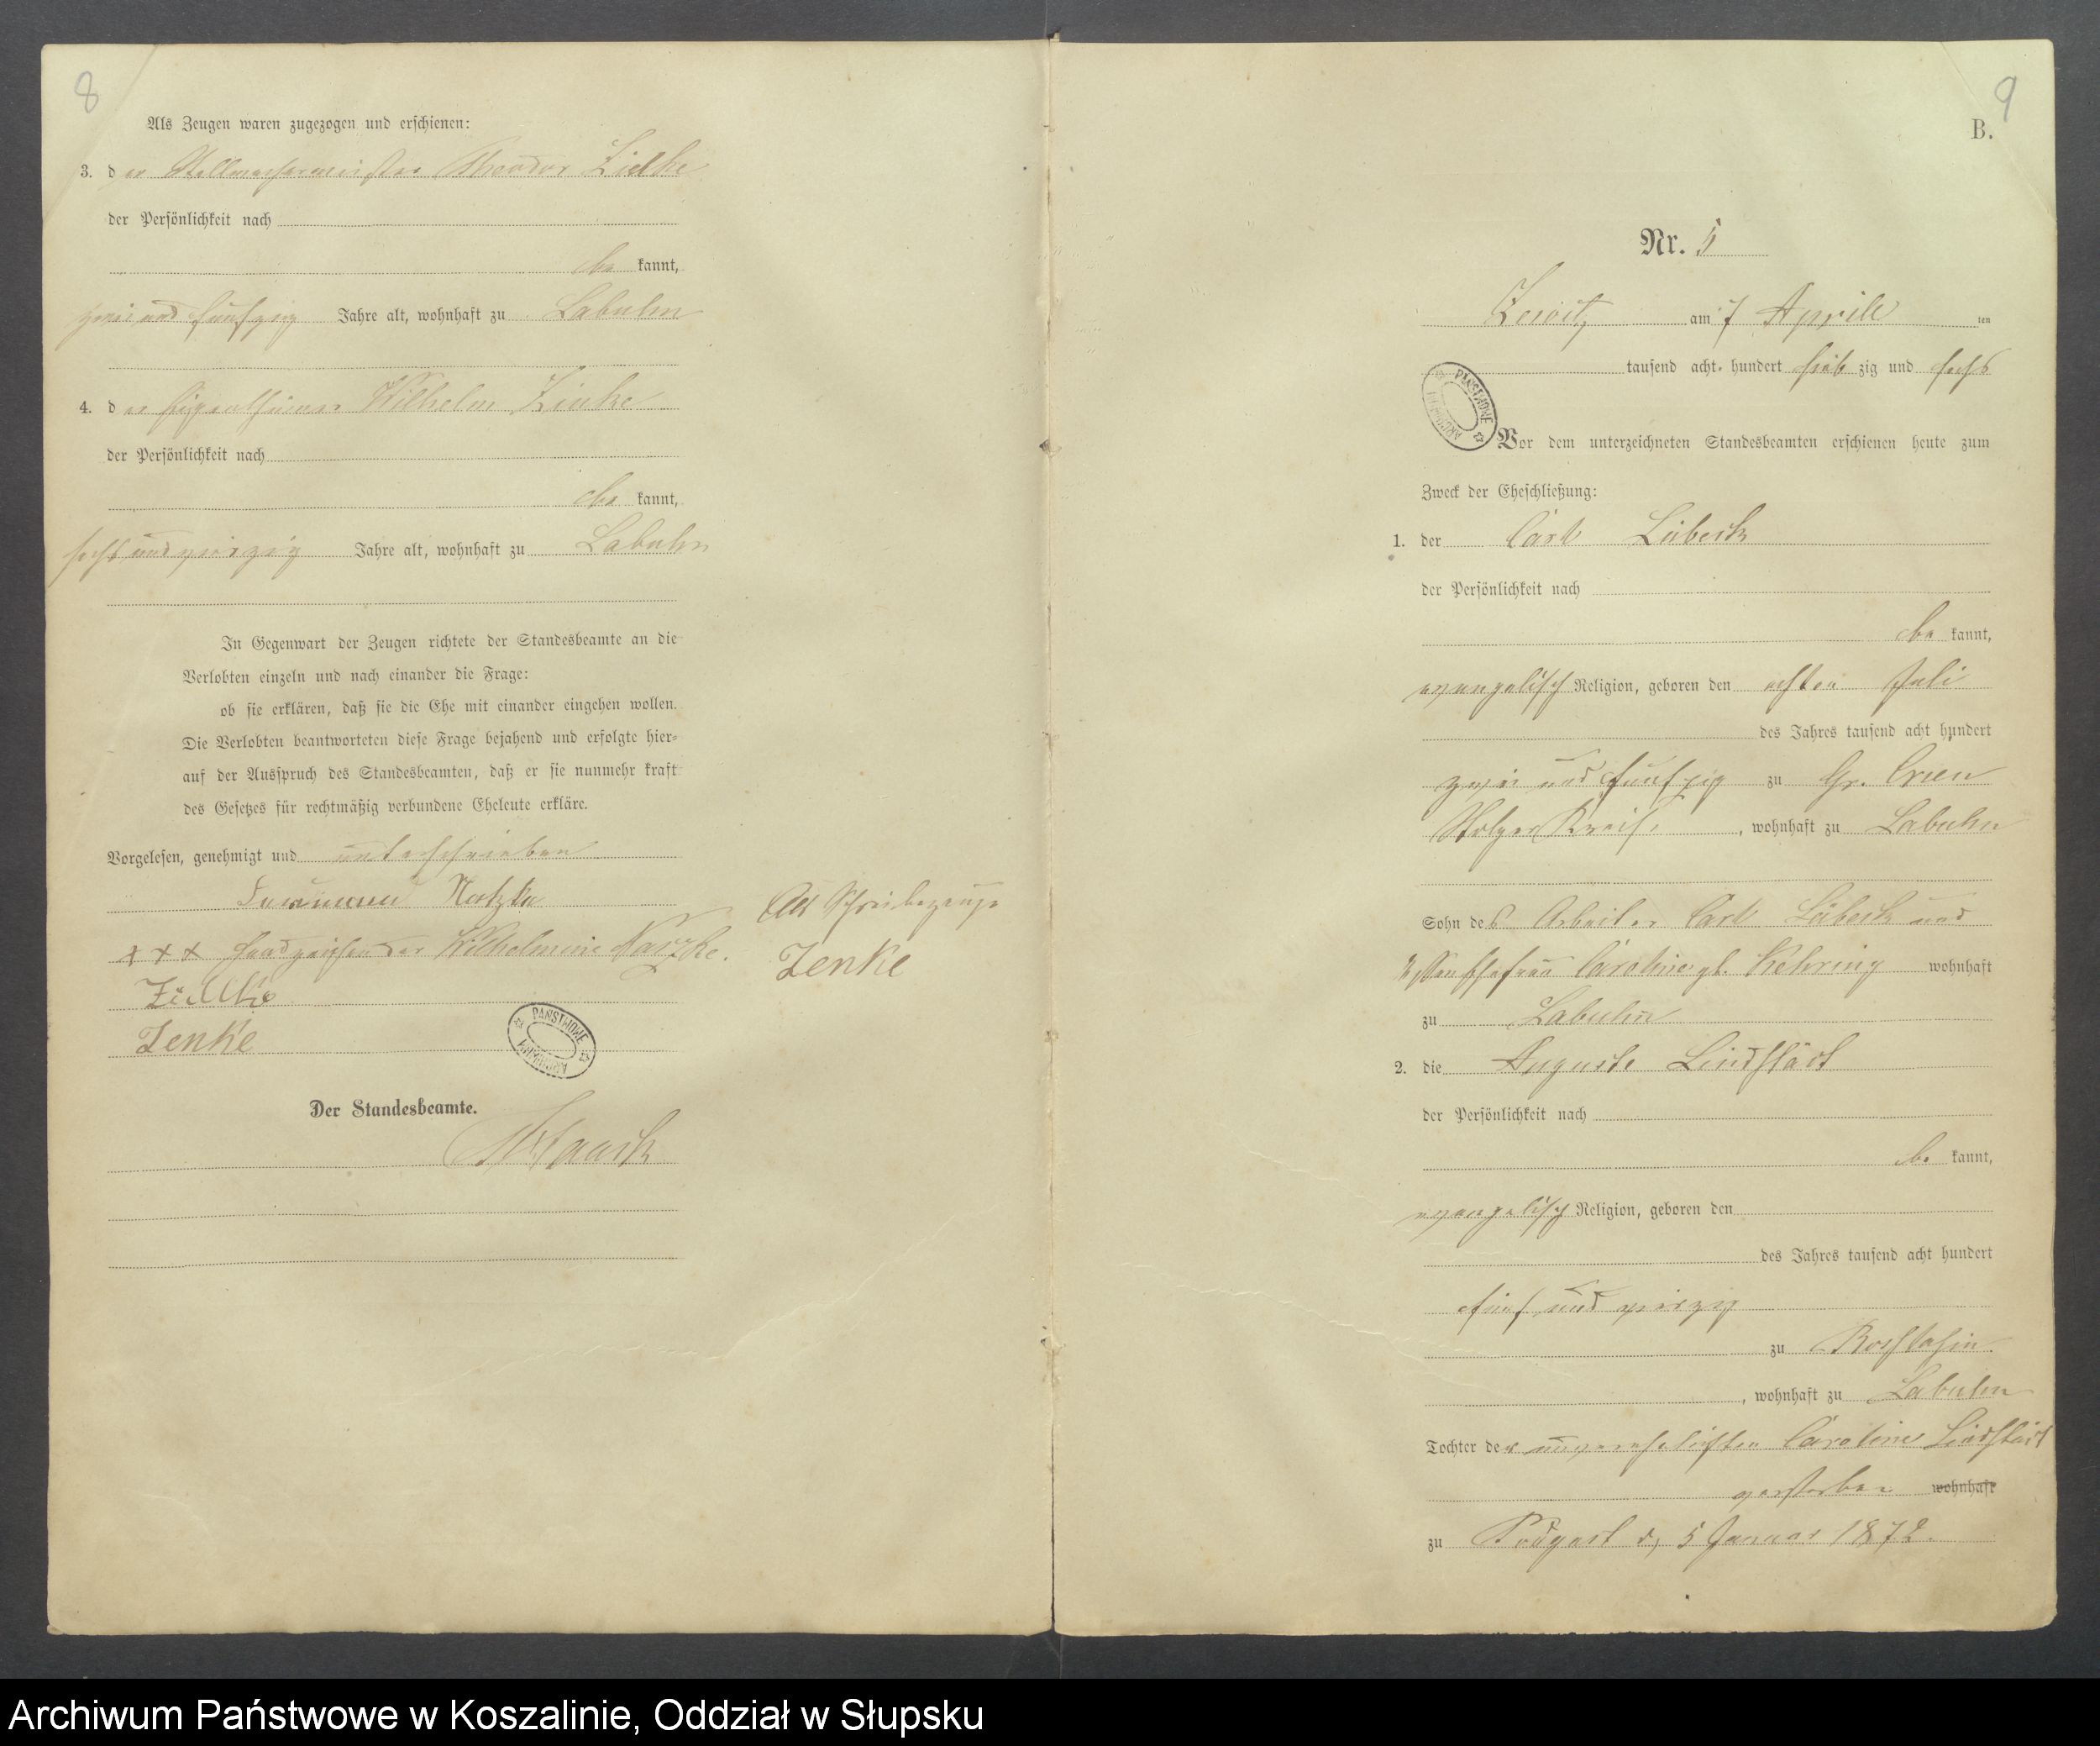 8
Als Zeugen waren zugezogen und erschienen:
3. der Stellmachermeister Theodor Zielke
der Persönlichkeit nach
bekannt,
zwei und fünfzig Jahre alt, wohnhaft zu Labuhn
4. der Eigenthümer Wilhelm Zinke
der Persönlichkeit nach
bekannt,
sechs und vierzig Jahre alt, wohnhaft zu Labuhn
In Gegenwart der Zeugen richtete der Standesbeamte an die
Verlobten einzeln und nach einander die Frage:
ob sie erklären, daß sie die Ehe mit einander eingehen wollen.
Die Verlobten beantworteten diese Frage bejahend und erfolgte hier-
auf der Ausspruch des Standesbeamten, daß er sie nunmehr kraft
des Gesetzes für rechtmäßig verbundene Eheleute erkläre.
Vorgelesen, genehmigt und unterschrieben
Natzke
+++ Handzeichen der Wilhelmine Narzke.
Zielke
Zenke
Als Schreibezeuge
Zenke
Der Standesbeamte.
PAŃSTWOWE ARCHIWUM
9
B.
Nr. 5
Zewitz am 7 Aprill ten
tausend acht hundert siebzig und sechs
PAŃSTWOWE ARCHIWUM
Vor dem unterzeichneten Standesbeamten erschienen heute zum
Zweck der Eheschließung:
1. der Carl Lübeck
der Persönlichkeit nach
bekannt,
evangelisch Religion, geboren den achten Juli
des Jahres tausend acht hundert
zwei und fünfzig zu Gr. Crien
Stolper Kreis, wohnhaft zu Labuhn
Sohn des Arbeiter Carl Lübeck und
dessen Ehefrau Caroline gb. Kehring wohnhaft
zu Labuhn
2. die Auguste Lindstädt
der Persönlichkeit nach
bekannt,
evangelisch Religion, geboren den
des Jahres tausend acht hundert
fünf und vierzig
zu Roschtahin
, wohnhaft zu Labuhn
Tochter der unverehelichten Caroline Lindstädt
verstorben wohnhaft
zu Podgast d, 5 Januar 1872.
Archiwum Państwowe w Koszalinie, Oddział w Słupsku